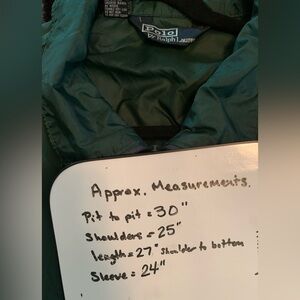 Polo
by Ralph Lauren
Approx. Measurements.
Pit to pit = 30"
Shoulders = 25"
length = 27" shoulder to bottom
Sleeve = 24"